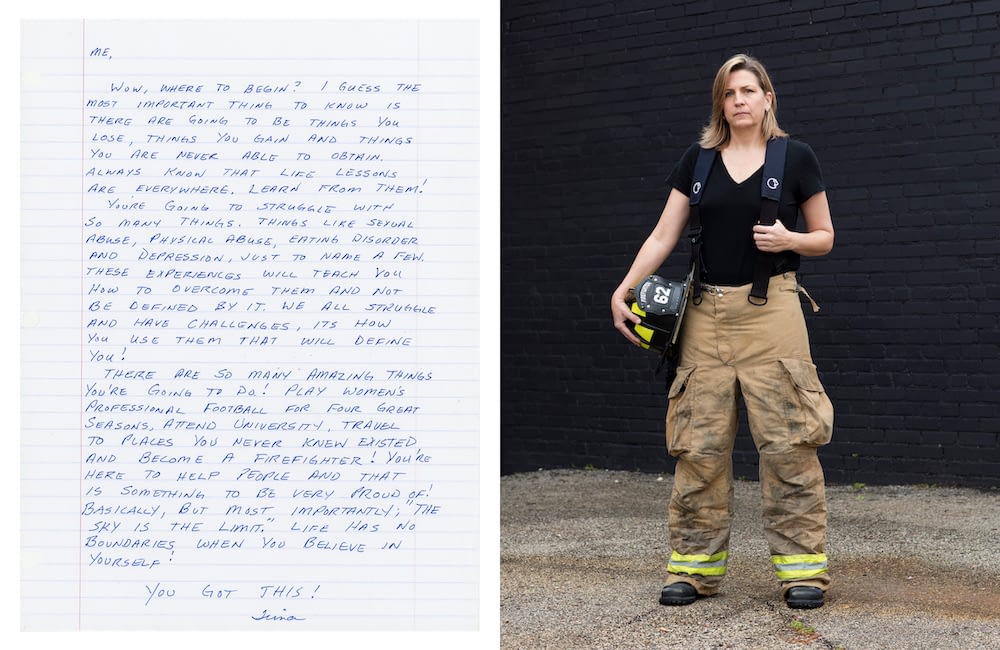 ME,
WOW, WHERE TO BEGIN? I GUESS THE
MOST IMPORTANT THING TO KNOW IS
THERE ARE GOING TO BE THINGS YOU
LOSE, THINGS YOU GAIN AND THINGS
YOU ARE NEVER ABLE TO OBTAIN.
ALWAYS KNOW THAT LIFE LESSONS
ARE EVERYWHERE. LEARN FROM THEM!
YOU'RE GOING TO STRUGGLE WITH
SO MANY THINGS. THINGS LIKE SEXUAL
ABUSE, PHYSICAL ABUSE, EATING DISORDER
AND DEPRESSION, JUST TO NAME A FEW.
THESE EXPERIENCES WILL TEACH YOU
HOW TO OVERCOME THEM AND NOT
BE DEFINED BY IT. WE ALL STRUGGLE
AND HAVE CHALLENGES, ITS HOW
YOU USE THEM THAT WILL DEFINE
YOU!
THERE ARE SO MANY AMAZING THINGS
YOU'RE GOING TO DO! PLAY WOMEN'S
PROFESSIONAL FOOTBALL FOR FOUR GREAT
SEASONS, ATTEND UNIVERSITY, TRAVEL
TO PLACES YOU NEVER KNEW EXISTED,
AND BECOME A FIREFIGHTER! YOU'RE
HERE TO HELP PEOPLE AND THAT
IS SOMETHING TO BE VERY PROUD OF!
BASICALLY, BUT MOST IMPORTANTLY; "THE
SKY IS THE LIMIT." LIFE HAS NO
BOUNDARIES WHEN YOU BELIEVE IN
YOURSELF!
YOU GOT THIS!
62